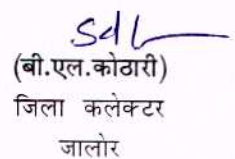 Sd/-
(बी.एल.कोठारी)
जिला कलेक्टर
जालोर